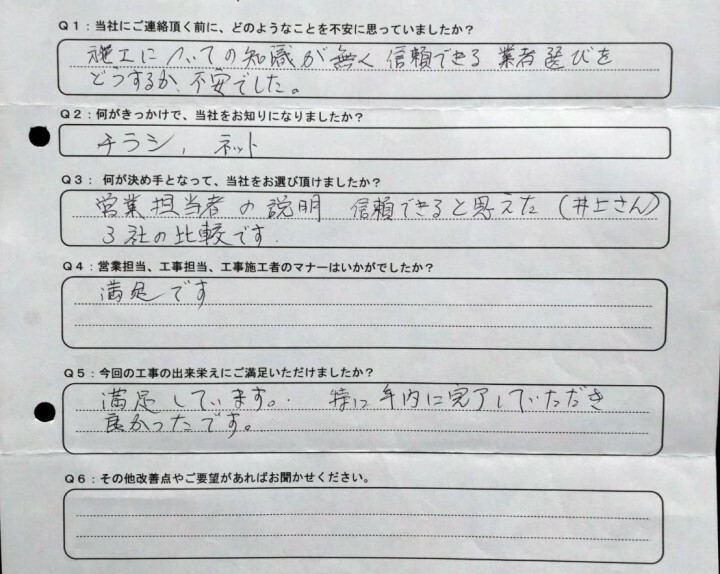 Q1：当社にご連絡頂く前に、どのようなことを不安に思っていましたか？
施工についての知識が無く 信頼できる 業者選びを
どうするか、不安でした。
Q2：何がきっかけで、当社をお知りになりましたか？
チラシ、ネット
Q3： 何が決め手となって、当社をお選び頂けましたか？
営業担当者の説明 信頼できると思えた（井上さん）
3社の比較です.
Q4：営業担当、工事担当、工事施工者のマナーはいかがでしたか？
満足です
Q5：今回の工事の出来栄えにご満足いただけましたか？
満足しています。 特に年内に完了していただき
良かったです。
Q6：その他改善点やご要望があればお聞かせください。